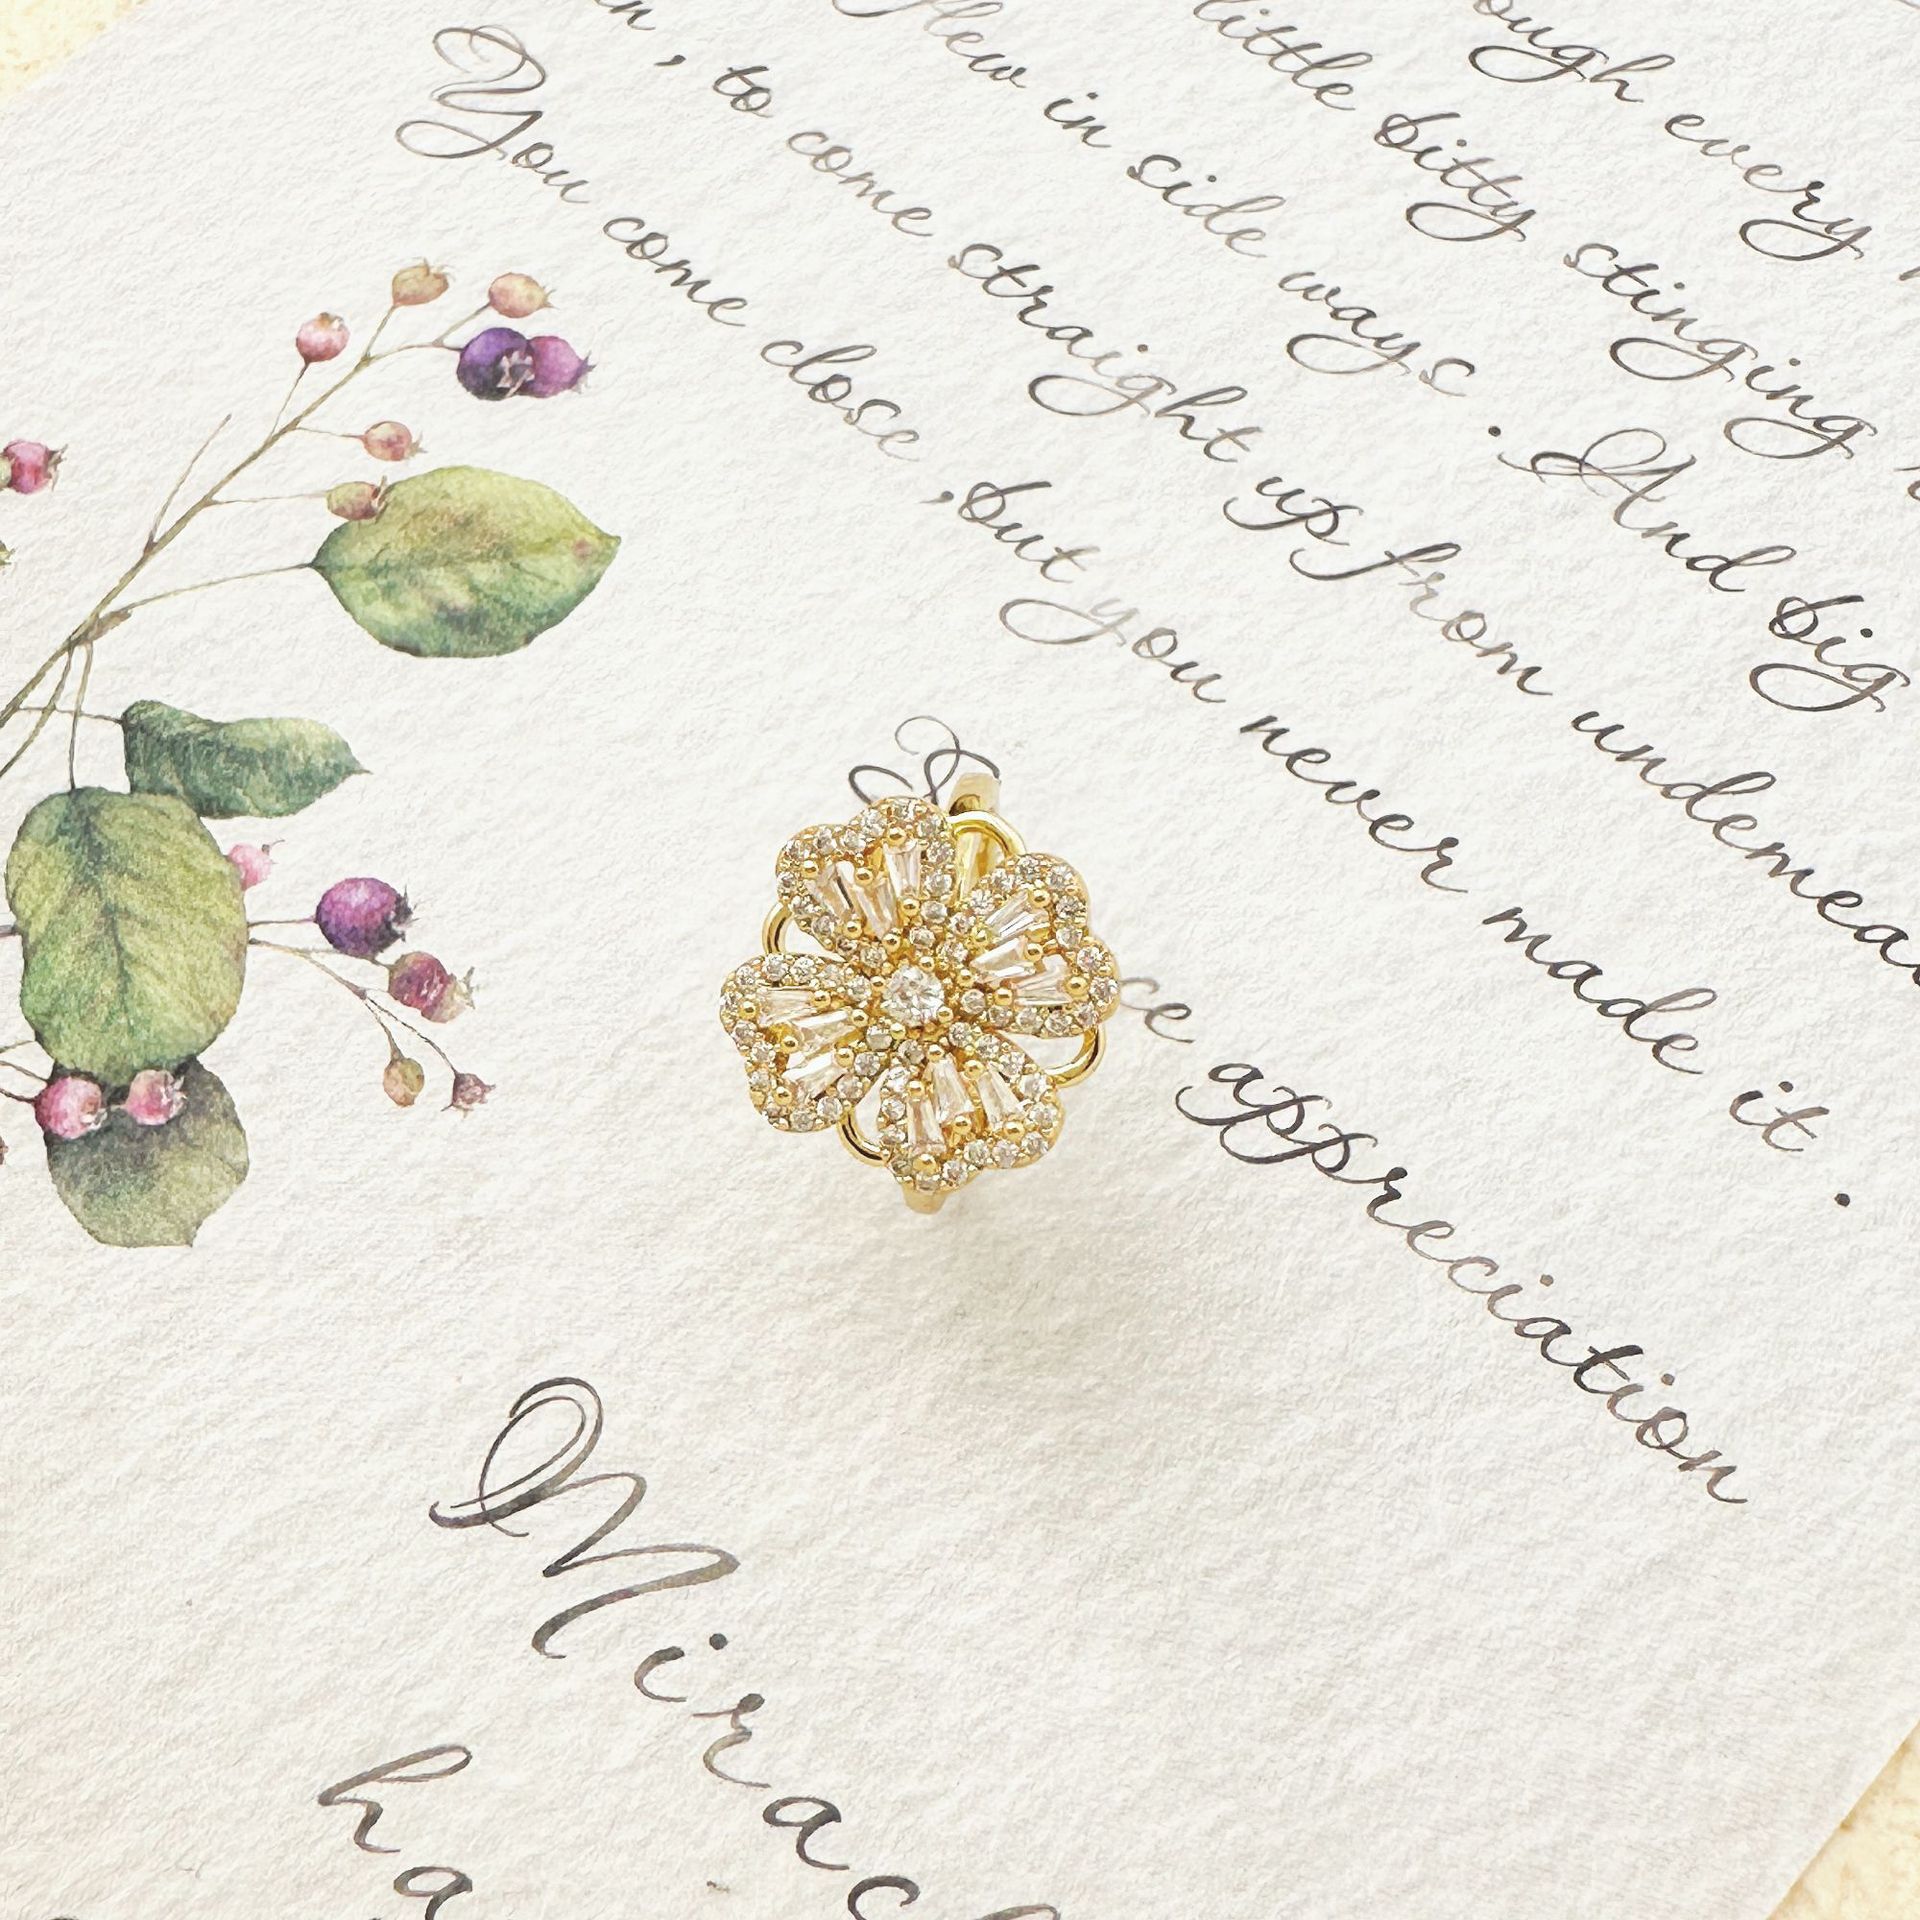 ough every
little bitty stinging
flew in side ways . And big
, to come straight up from undernea
You come close ,but you never made it .
ce appreciation
Mirac
ha